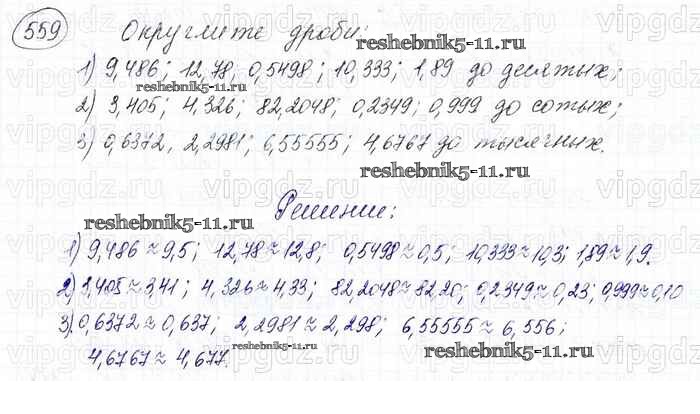 559 Округлите дроби:
reshebnik5-11.ru
1) 9,486; 12,78, 0,5498; 10,333; 1,89 до десятых;
reshebnik5-11.ru
2) 3,405; 4,326; 82,2048; 0,2349; 0,999 до сотых;
3) 0,6372, 2,2981; 6,55555; 4,6767 до тысячных.
reshebnik5-11.ru
Решение:
reshebnik5-11.ru
1) 9,486≈9,5; 12,78≈12,8; 0,5498≈0,5; 10,333≈10,3; 1,89≈1,9.
2) 3,405≈3,41; 4,326≈4,33; 82,2048≈82,20; 0,2349≈0,23; 0,999≈0,10
3). 0,6372≈0,637; 2,2981≈2,298; 6,55555≈6,556;
4,6767≈4,677.
reshebnik5-11.ru
reshebnik5-11.ru
vipgdz.ru vipgdz.ru vipgdz.ru vipgdz.ru